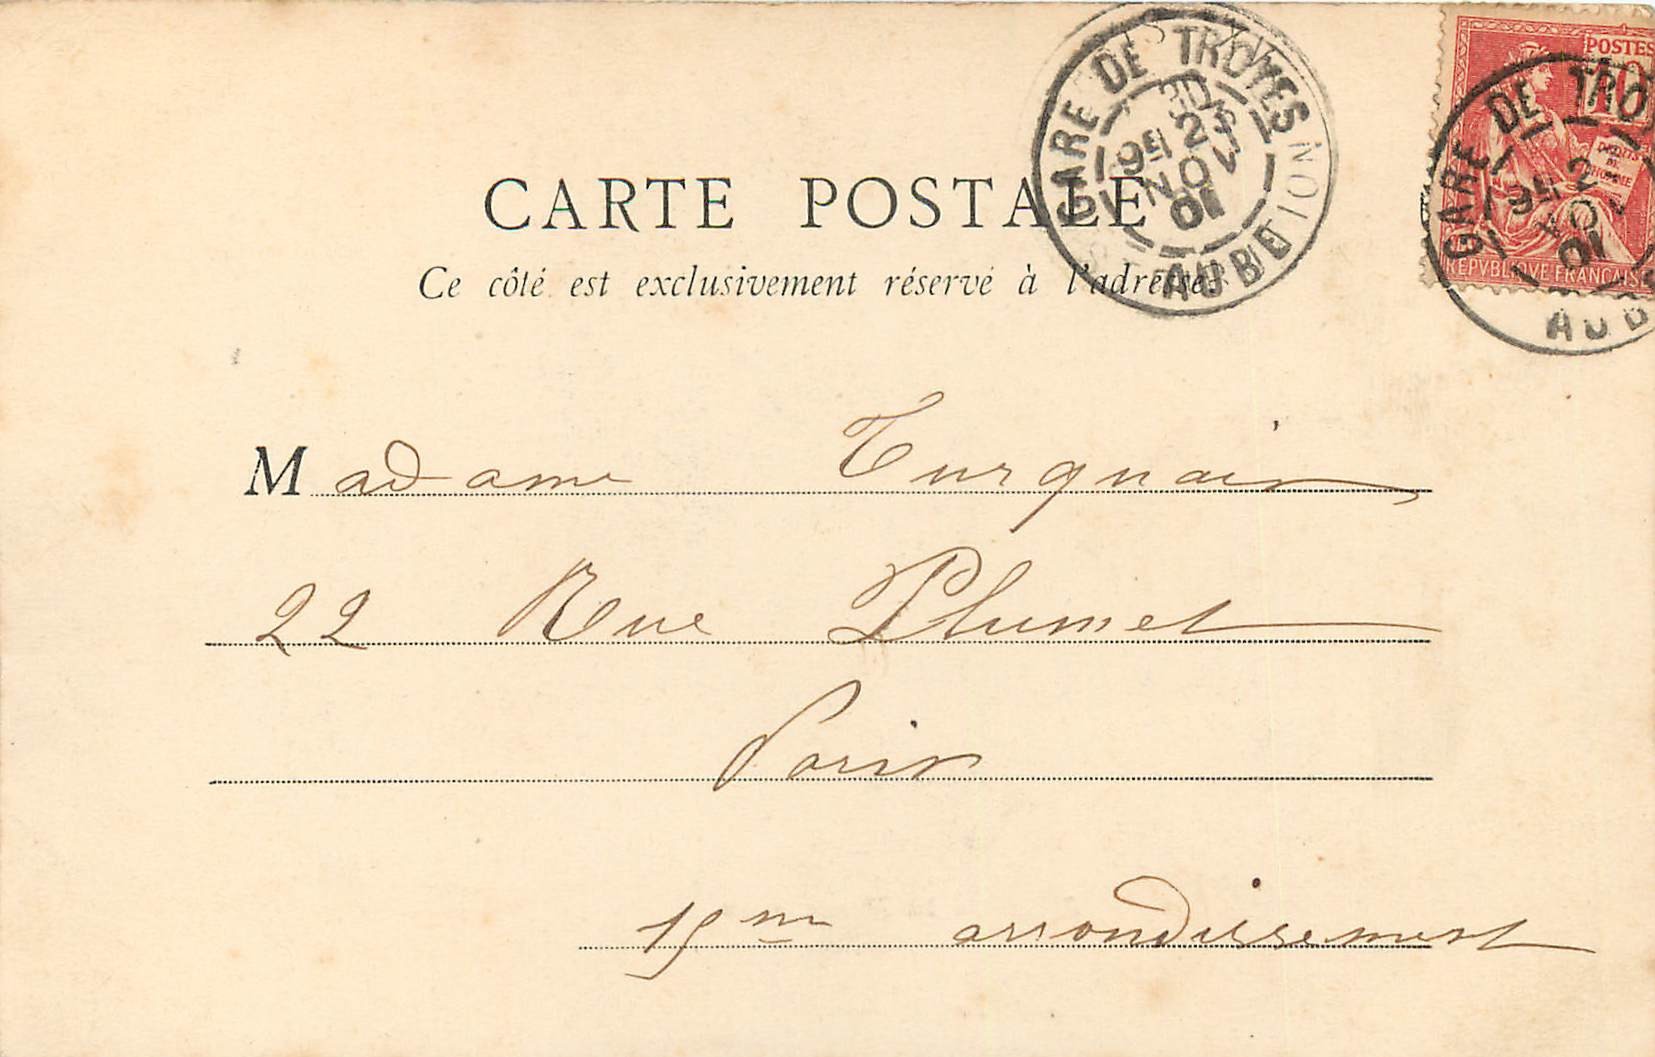 CARTE POSTALE
Ce côté est exclusivement réservé à l'adresse.
GARE DE TROYES
9E 23
NOV
01
AUBE
POSTES
10
DROITS
DE
L'HOMME
REPVBLIQVE FRANÇAISE
GARE DE TRO
9E 2
01
AUB
Madame Turquais
22 Rue Plumet
Paris
15me arrondissement